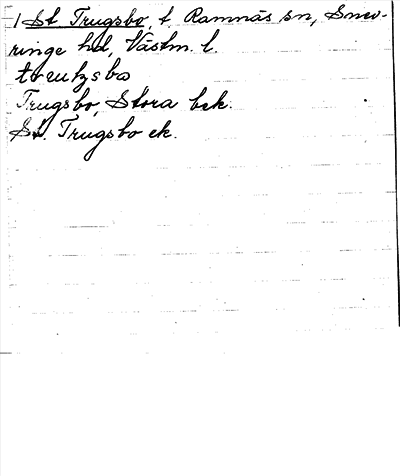 1 St. Trugsbo, t. Ramnäs sn, Snev-
ringe hd, Västm. l.
Trugsbo, Stora bek.
St. Trugsbo ek.